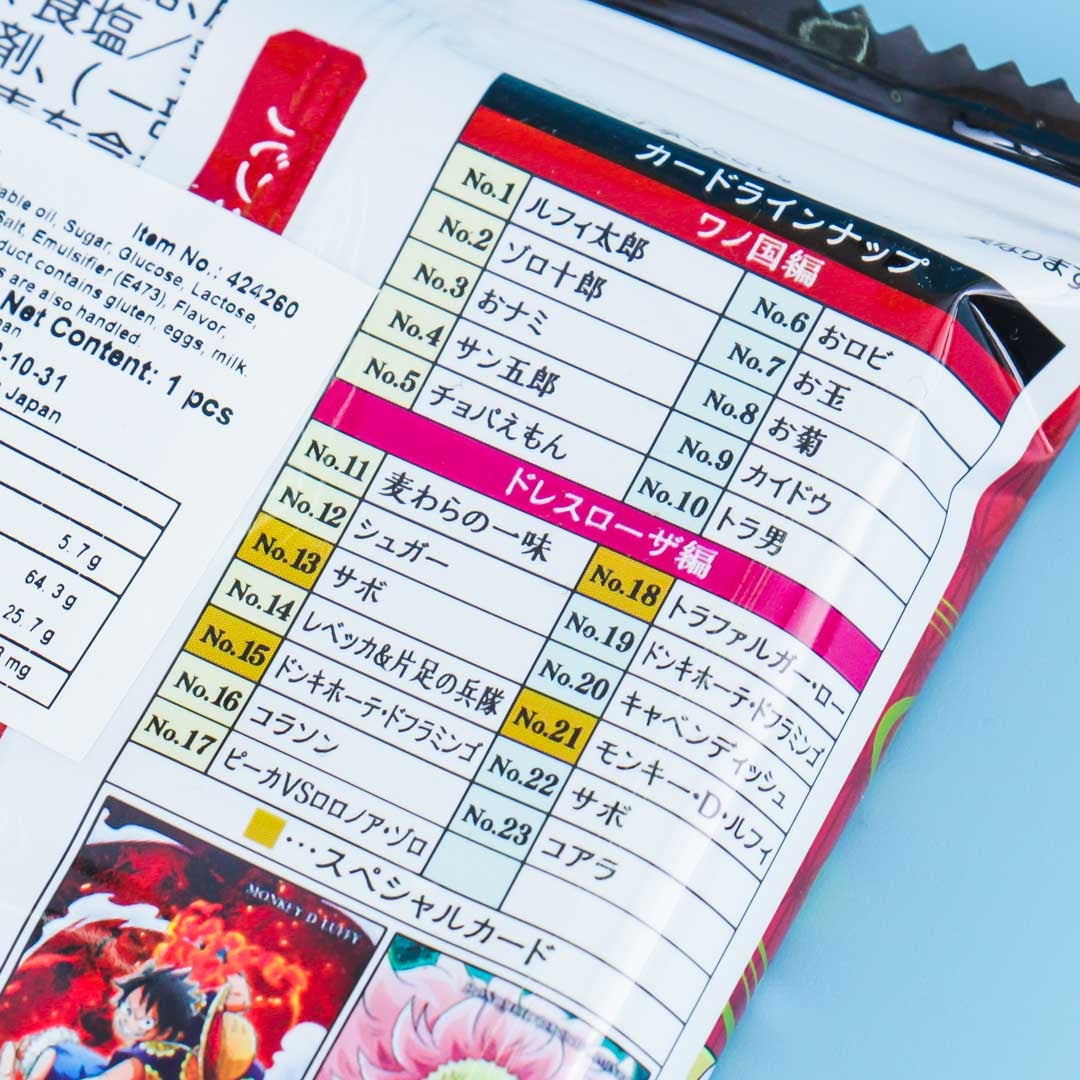 食塩/
剤、(一
Item No.: 424260
able oil, Sugar, Glucose, Lactose,
Salt, Emulsifier (E473), Flavor,
duct contains gluten, eggs, milk.
s are also handled.
Net Content: 1 pcs
-10-31
Japan
5.7g
64.3g
25.7g
mg
カードラインナップ
ワノ国編
No.1 ルフィ太郎
No.2 ゾロ十郎
No.3 おナミ
No.4 サン五郎
No.5 チョパえもん
No.6 おロビ
No.7 お玉
No.8 お菊
No.9 カイドウ
No.10 トラ男
ドレスローザ編
No.11 麦わらの一味
No.12 シュガー
No.13 サボ
No.14 レベッカ&片足の兵隊
No.15 ドンキホーテ・ドフラミンゴ
No.16 コラソン
No.17 ピーカVSロロノア・ゾロ
No.18 トラファルガー・ロー
No.19 ドンキホーテ・ドフラミンゴ
No.20 キャベンディッシュ
No.21 モンキー・D・ルフィ
No.22 サボ
No.23 コアラ
…スペシャルカード
MONKEY D LUFFY